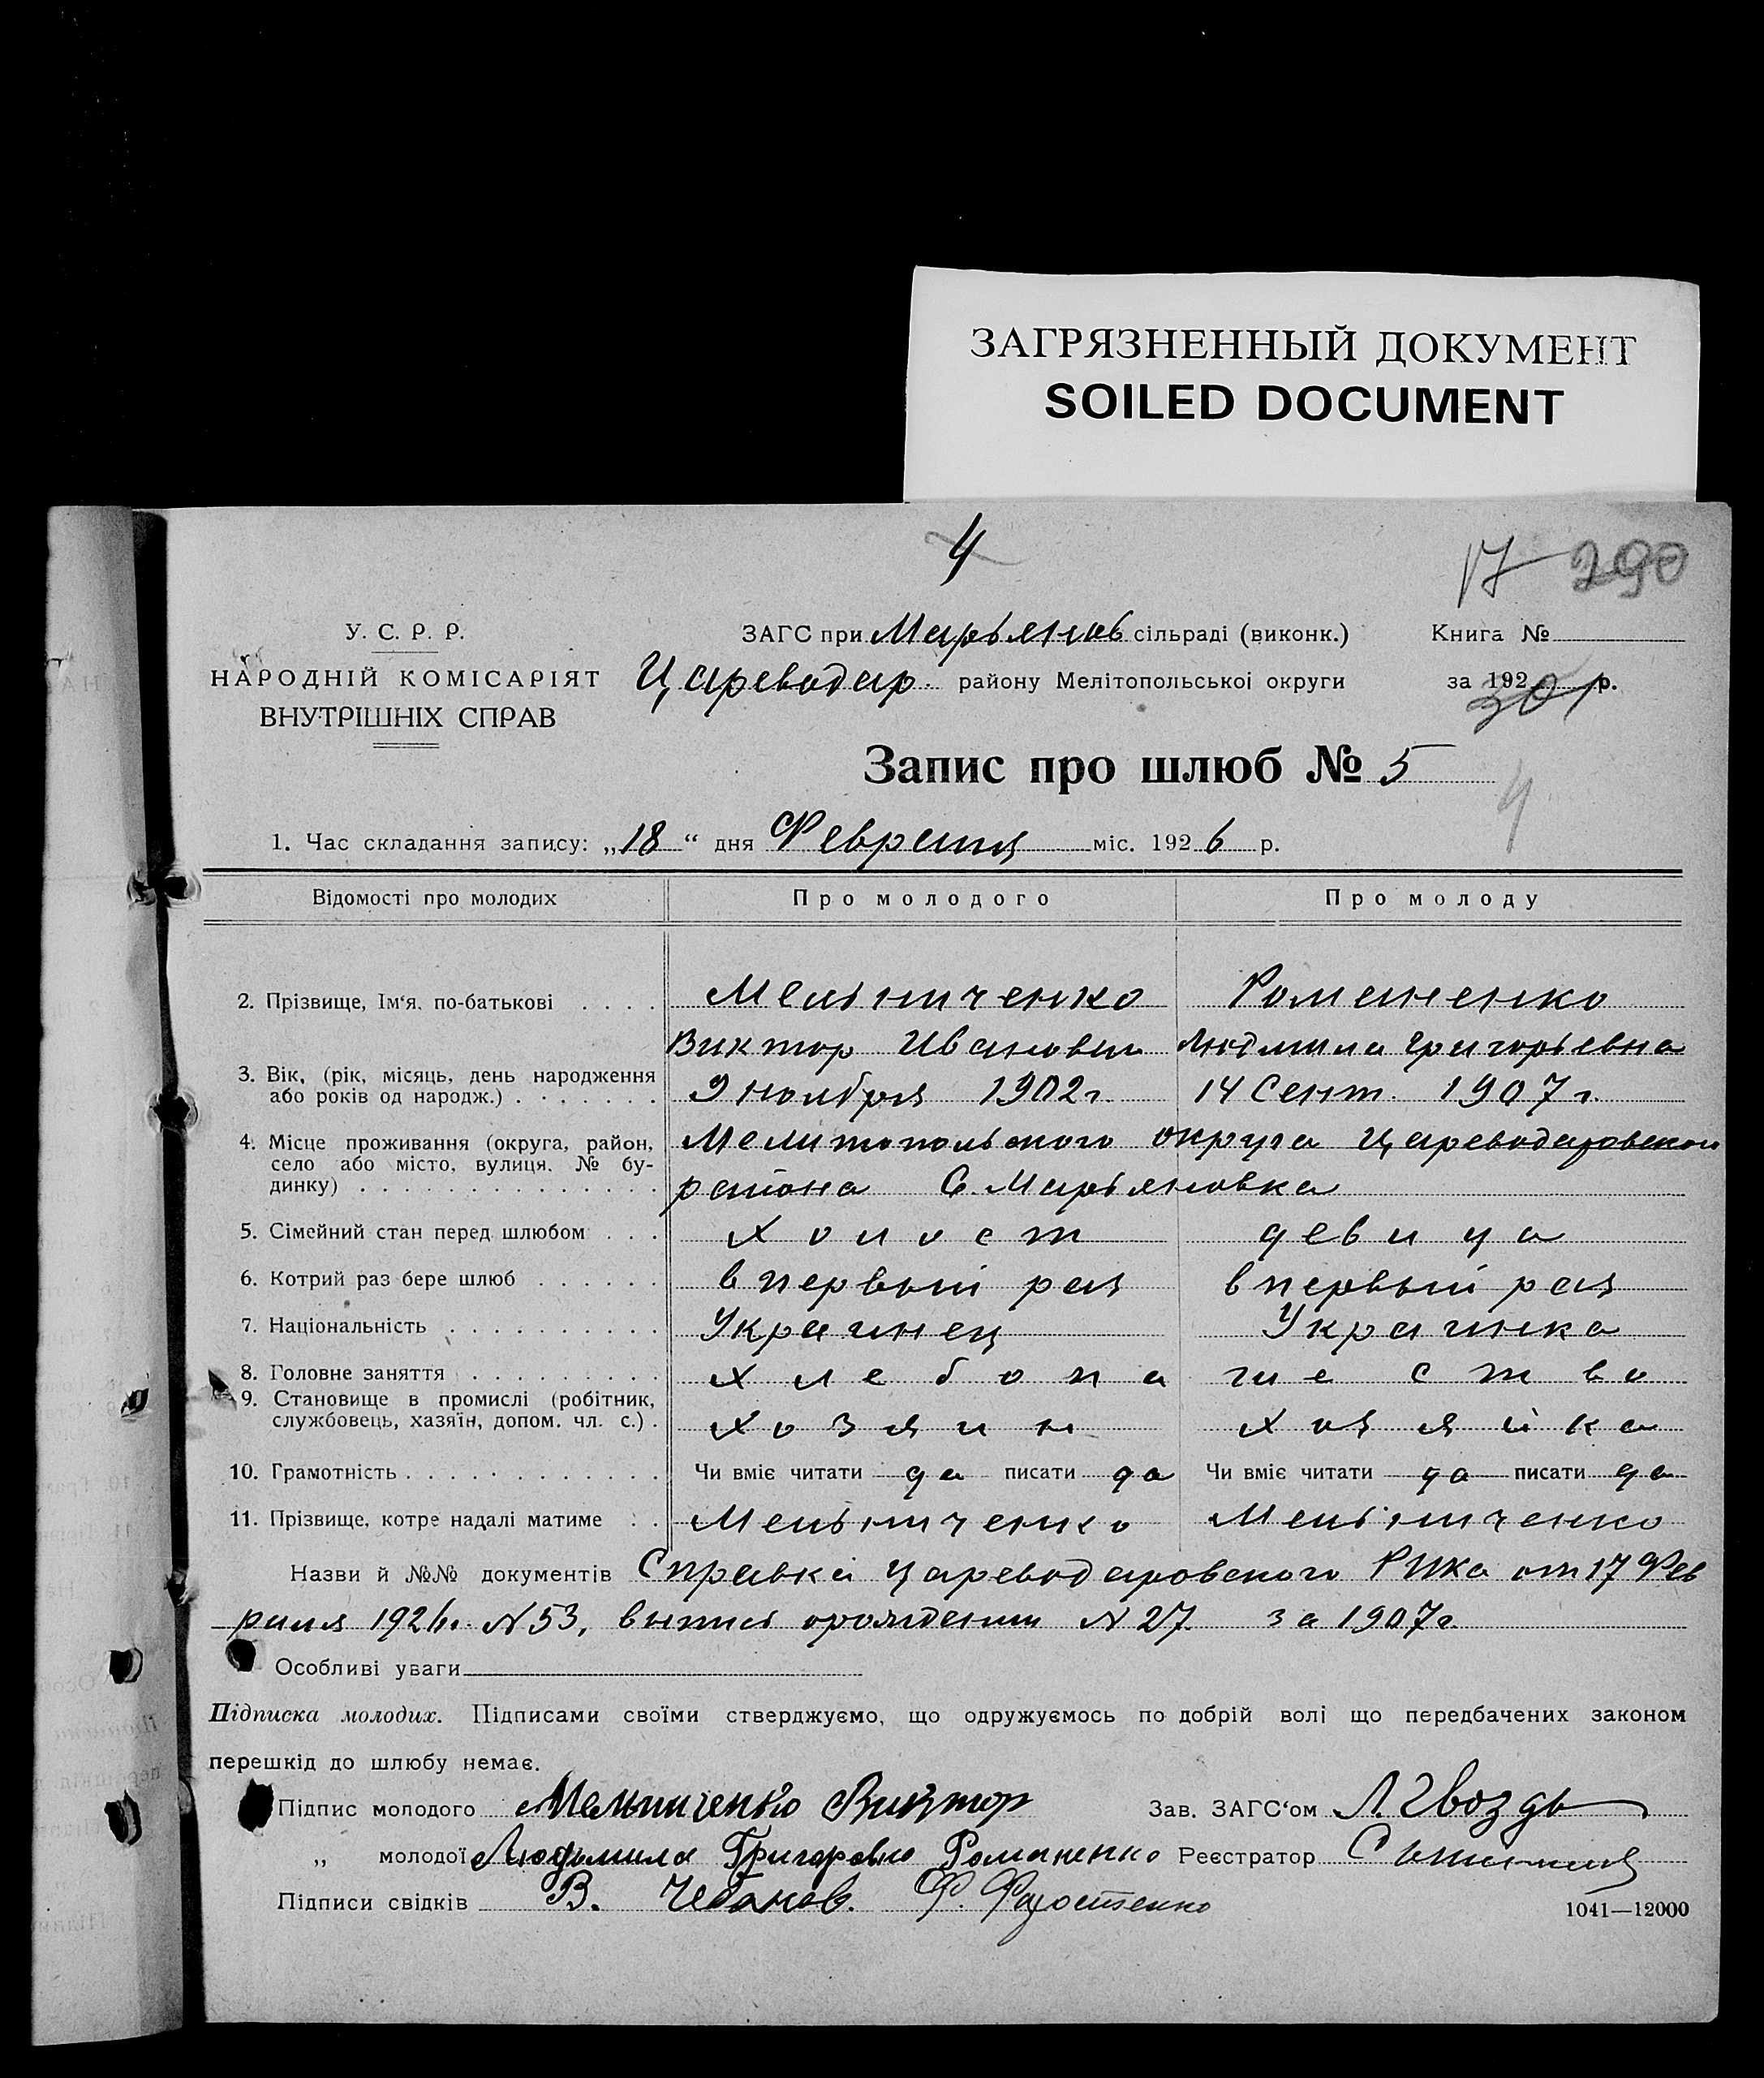 ЗАГРЯЗНЕННЫЙ ДОКУМЕНТ
SOILED DOCUMENT
4
17 290
У. С. Р. Р.
НАРОДНІЙ КОМІСАРІЯТ
ВНУТРІШНІХ СПРАВ
ЗАГС при Марьянов сільраді (виконк.)
Цареводар. району Мелітопольської округи
Книга №
за 192 р.
301
Запис про шлюб № 5
4
1. Час складання запису: „18“ дня Февраля міс. 1926 р.
Відомості про молодих Про молодого Про молоду
2. Прізвище, Ім‘я, по-батькові Мельниченко Романенко
Виктор Иванович Людмила Григорьевна
3. Вік, (рік, місяць, день народження
або років од народж.) 9 ноября 1902 г. 14 Сент. 1907 г.
4. Місце проживання (округа, район,
село або місто, вулиця, № бу-
динку)
Мелитопольского округа Цареводаровского
района С. Марьяновка
5. Сімейний стан перед шлюбом холост девица
6. Котрий раз бере шлюб в первый раз в первый раз
7. Національність Украинец Украинка
8. Головне заняття хлебопашество
9. Становище в промислі (робітник,
службовець, хазяїн, допом. чл. с.) хозяин хозяйка
10. Грамотність Чи вміє читати да писати да Чи вміє читати да писати да
11. Прізвище, котре надалі матиме Мельниченко Мельниченко
Назви й №№ документів Справка Цареводаровского РИКа от 17 Фев
раля 1926 г. N 53, выпись о рождении N 27. за 1907 г.
Особливі уваги
Підписка молодих. Підписами своїми стверджуємо, що одружуємось по добрій волі що передбачених законом
перешкід до шлюбу немає.
Підпис молодого Мельниченко Виктор Зав. ЗАГС‘ом Л. Гвоздь
„ молодої Людьмила Григоревна Романенко Реєстратор
Підписи свідків В. Чебанов. Ф.
1041—12000